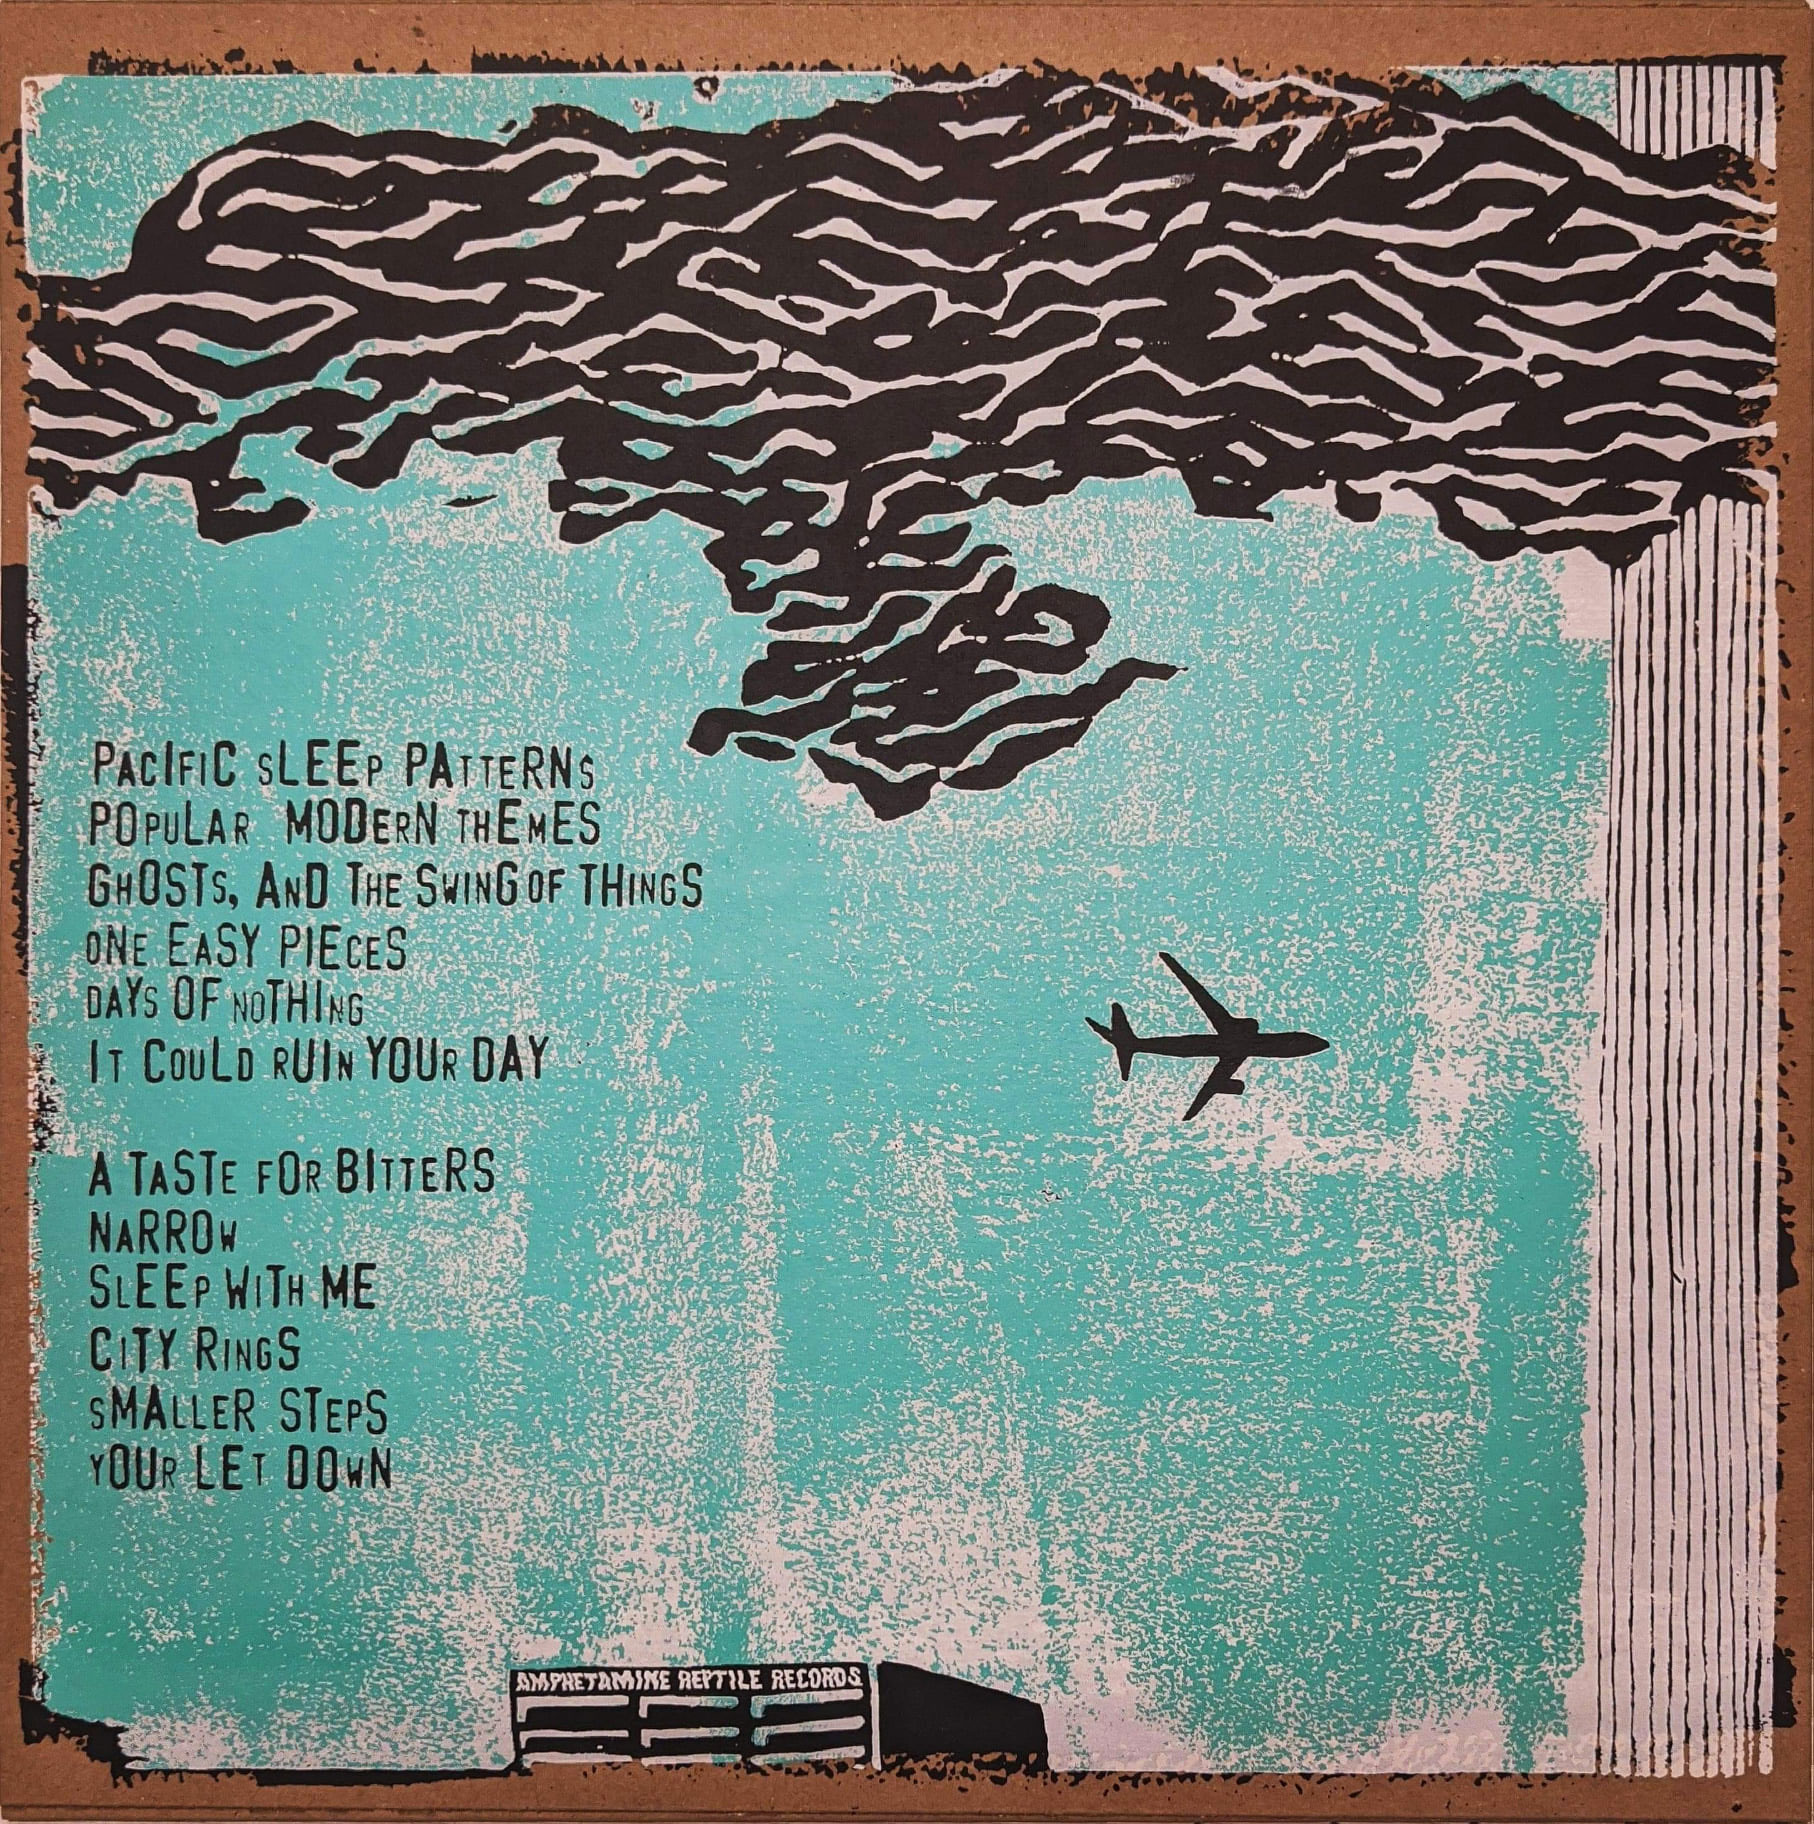 PACIFIC SLEEP PATTERNS
POPULAR MODERN THEMES
GHOSTS, AND THE SWING OF THINGS
ONE EASY PIECES
DAYS OF NOTHING
IT COULD RUIN YOUR DAY
A TASTE FOR BITTERS
NARROW
SLEEP WITH ME
CITY RINGS
SMALLER STEPS
YOUR LET DOWN
AMPHETAMINE REPTILE RECORDS